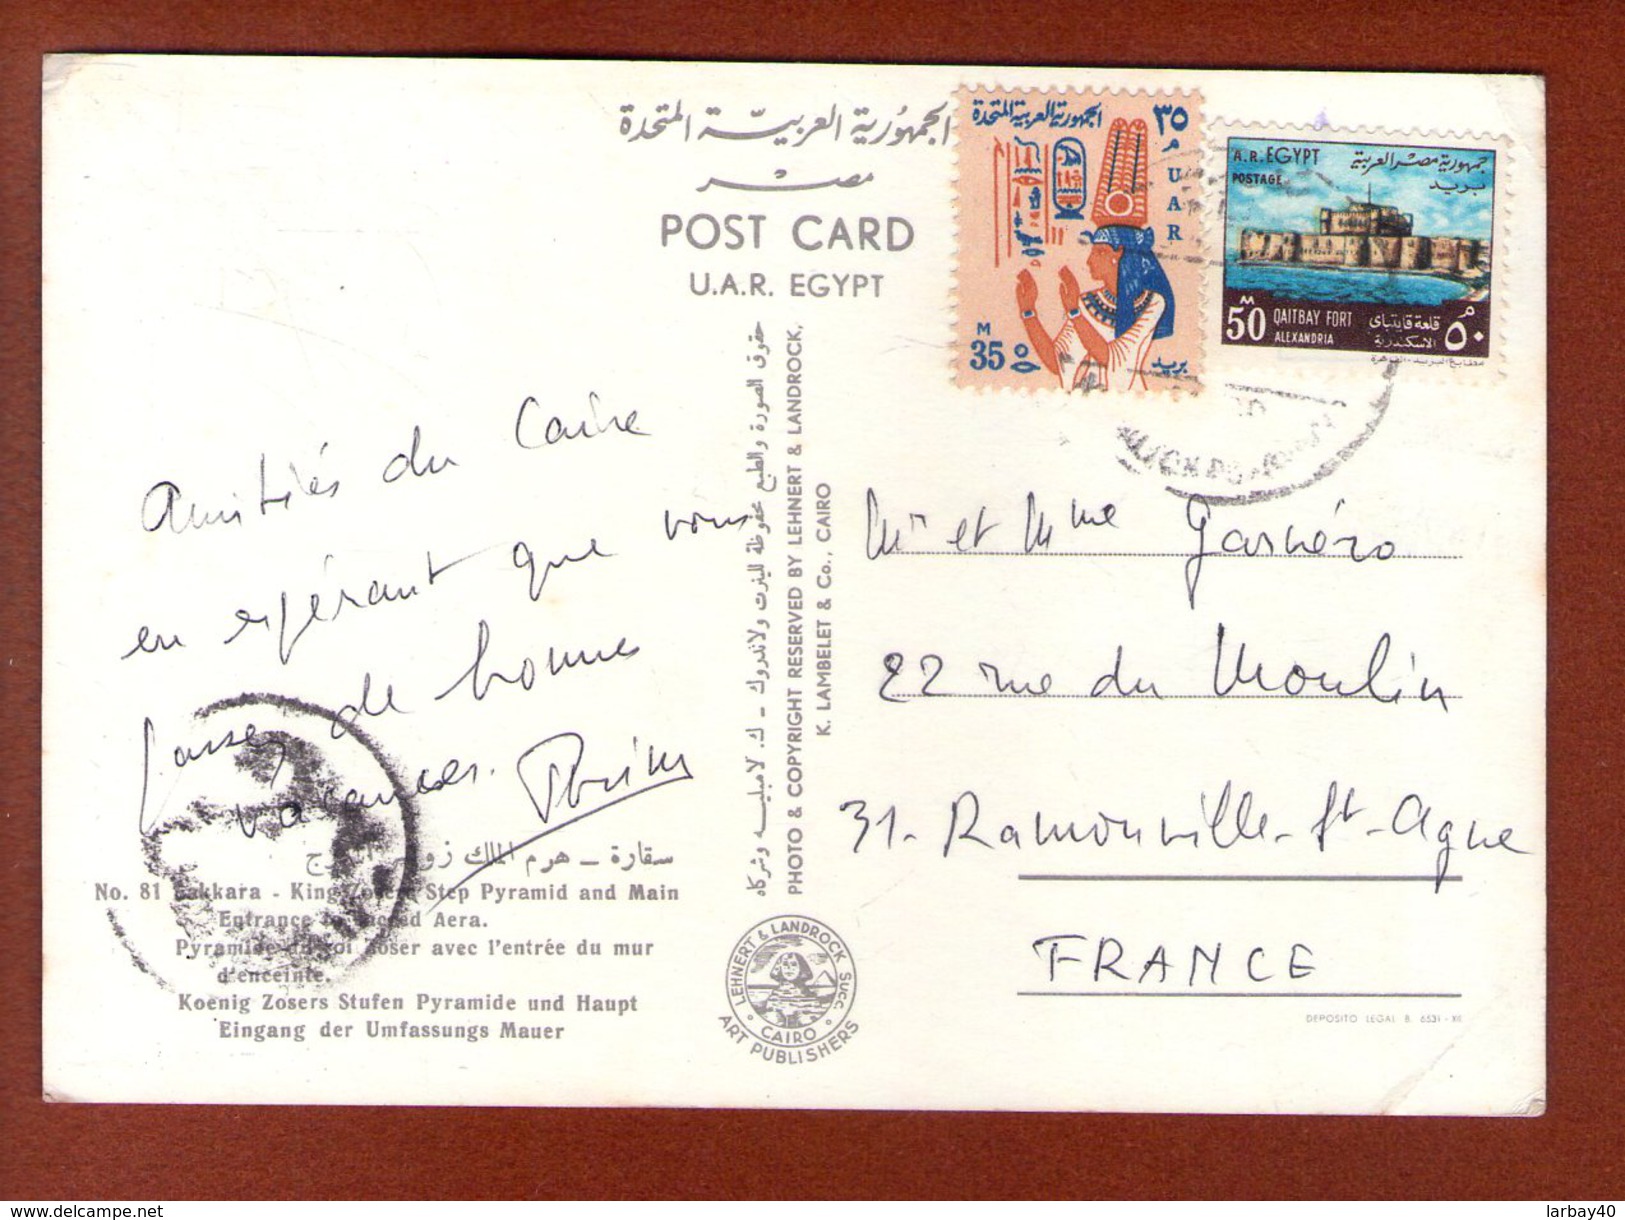 الجمهورية العربية المتحدة
مصر
POST CARD
U.A.R. EGYPT
الجمهورية العربية المتحدة
٣٥
م
UAR
M
35
بريد
A.R. EGYPT
POSTAGE
جمهورية مصر العربية
بريد
M
50
QAITBAY FORT
ALEXANDRIA
قلعة قايتباى
الاسكندرية
م
٥٠
مطابع البريد - القاهرة
Amitiés du Caire
en espérant que vous
passez de bonnes
vacances.
حقوق الصورة والطبع محفوظة للينرت ولاندروك - ك. لامبليه وشركاه
PHOTO & COPYRIGHT RESERVED BY LEHNERT & LANDROCK,
K. LAMBELET & Co., CAIRO
Mr et Mme
22 rue du Moulin
31 - Ramonville - St - Agne
FRANCE
سقارة - هرم الملك
No. 81 Sakkara - King Zosers Step Pyramid and Main
Entrance to Sacred Aera.
Pyramide du roi Zoser avec l'entrée du mur
d'enceinte.
Koenig Zosers Stufen Pyramide und Haupt
Eingang der Umfassungs Mauer
LEHNERT & LANDROCK SUCC.
CAIRO
ART PUBLISHERS
DEPOSITO LEGAL B. 6531 - XII
www.delcampe.net
larbay40